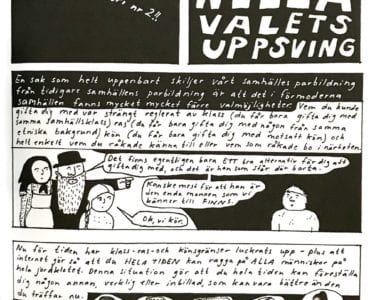 nr 2!!
NILLA
VALETS
UPPSVING
En sak som helt uppenbart skiljer vårt samhälles parbildning
från tidigare samhällens parbildning är att det i förmoderna
samhällen fanns mycket mycket färre valmöjligheter. Vem du kunde
gifta dig med var strängt reglerat av klass (du får bara gifta dig med
samma samhällsklass) ras (du får bara gifta dig med någon från samma
etniska bakgrund) kön (du får bara gifta dig med motsatt kön) och
helt enkelt vem du råkade känna till eller vem som råkade bo i närheten.
Det finns egentligen bara ETT bra alternativ för dig att
gifta dig med, och det är han som står där borta.
Kanske mest för att han är
den enda mannen som vi
känner till FINNS.
Ok, vi kör.
Nu för tiden har klass- ras- och könsgränser luckrats upp – plus att
internet gör så att du HELA TIDEN kan ragga på ALLA människor på
hela jordklotet. Denna situation gör att du hela tiden kan föreställa
dig någon annan, verklig eller inbillad, som kan vara bättre än den
du träffar nu.